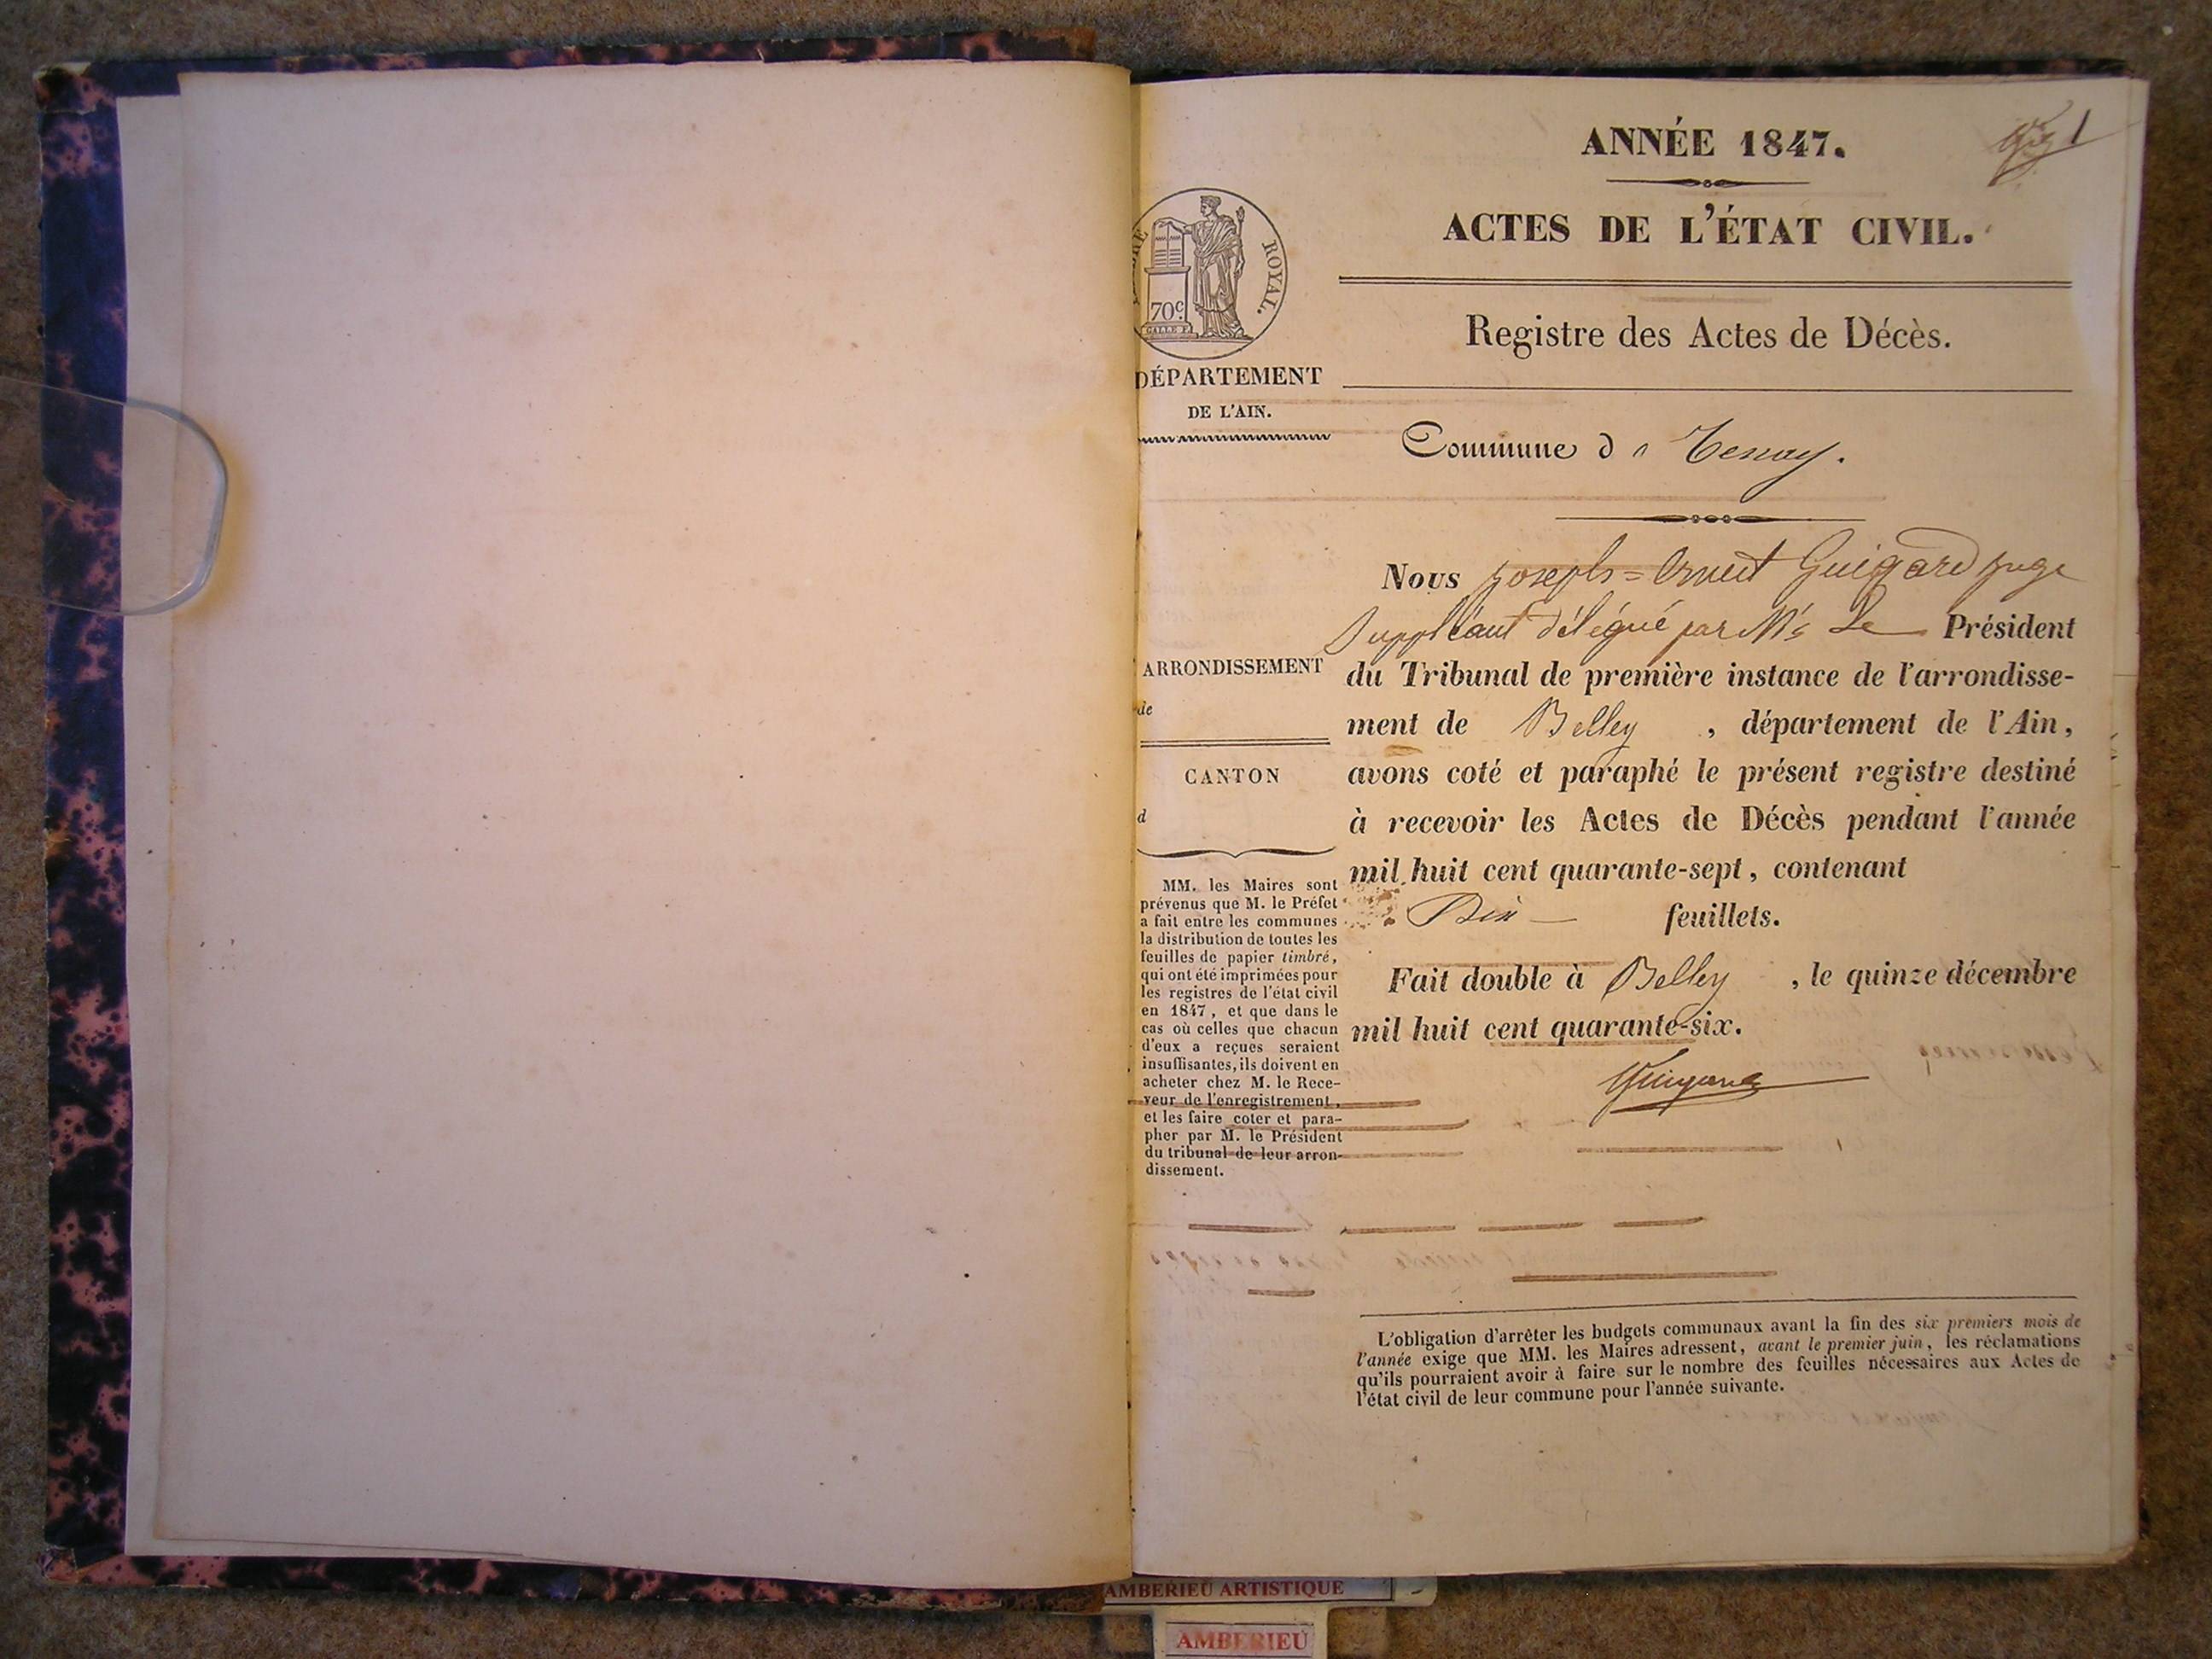 ANNÉE 1847.
1
ACTES DE L'ÉTAT CIVIL.
ROYAL.
70c
Registre des Actes de Décès.
DÉPARTEMENT
DE L'AIN.
Commune de Tenay.
Nous joseph=Ernest Guigard juge
Suppléant délégué par Mr Le Président
du Tribunal de première instance de l'arrondisse-
ment de Belley, département de l'Ain,
avons coté et paraphé le présent registre destiné
à recevoir les Actes de Décès pendant l'année
mil huit cent quarante-sept, contenant
Dix feuillets.
Fait double à Belley, le quinze décembre
mil huit cent quarante-six.
Guigard
ARRONDISSEMENT
de
CANTON
d
MM. les Maires sont
prévenus que M. le Préfet
a fait entre les communes
la distribution de toutes les
feuilles de papier timbré,
qui ont été imprimées pour
les registres de l'état civil
en 1847, et que dans le
cas où celles que chacun
d'eux a reçues seraient
insuffisantes, ils doivent en
acheter chez M. le Rece-
veur de l'enregistrement,
et les faire coter et para-
pher par M. le Président
du tribunal de leur arron-
dissement.
L'obligation d'arrêter les budgets communaux avant la fin des six premiers mois de
l'année exige que MM. les Maires adressent, avant le premier juin, les réclamations
qu'ils pourraient avoir à faire sur le nombre des feuilles nécessaires aux Actes de
l'état civil de leur commune pour l'année suivante.
AMBERIEU ARTISTIQUE
AMBERIEU